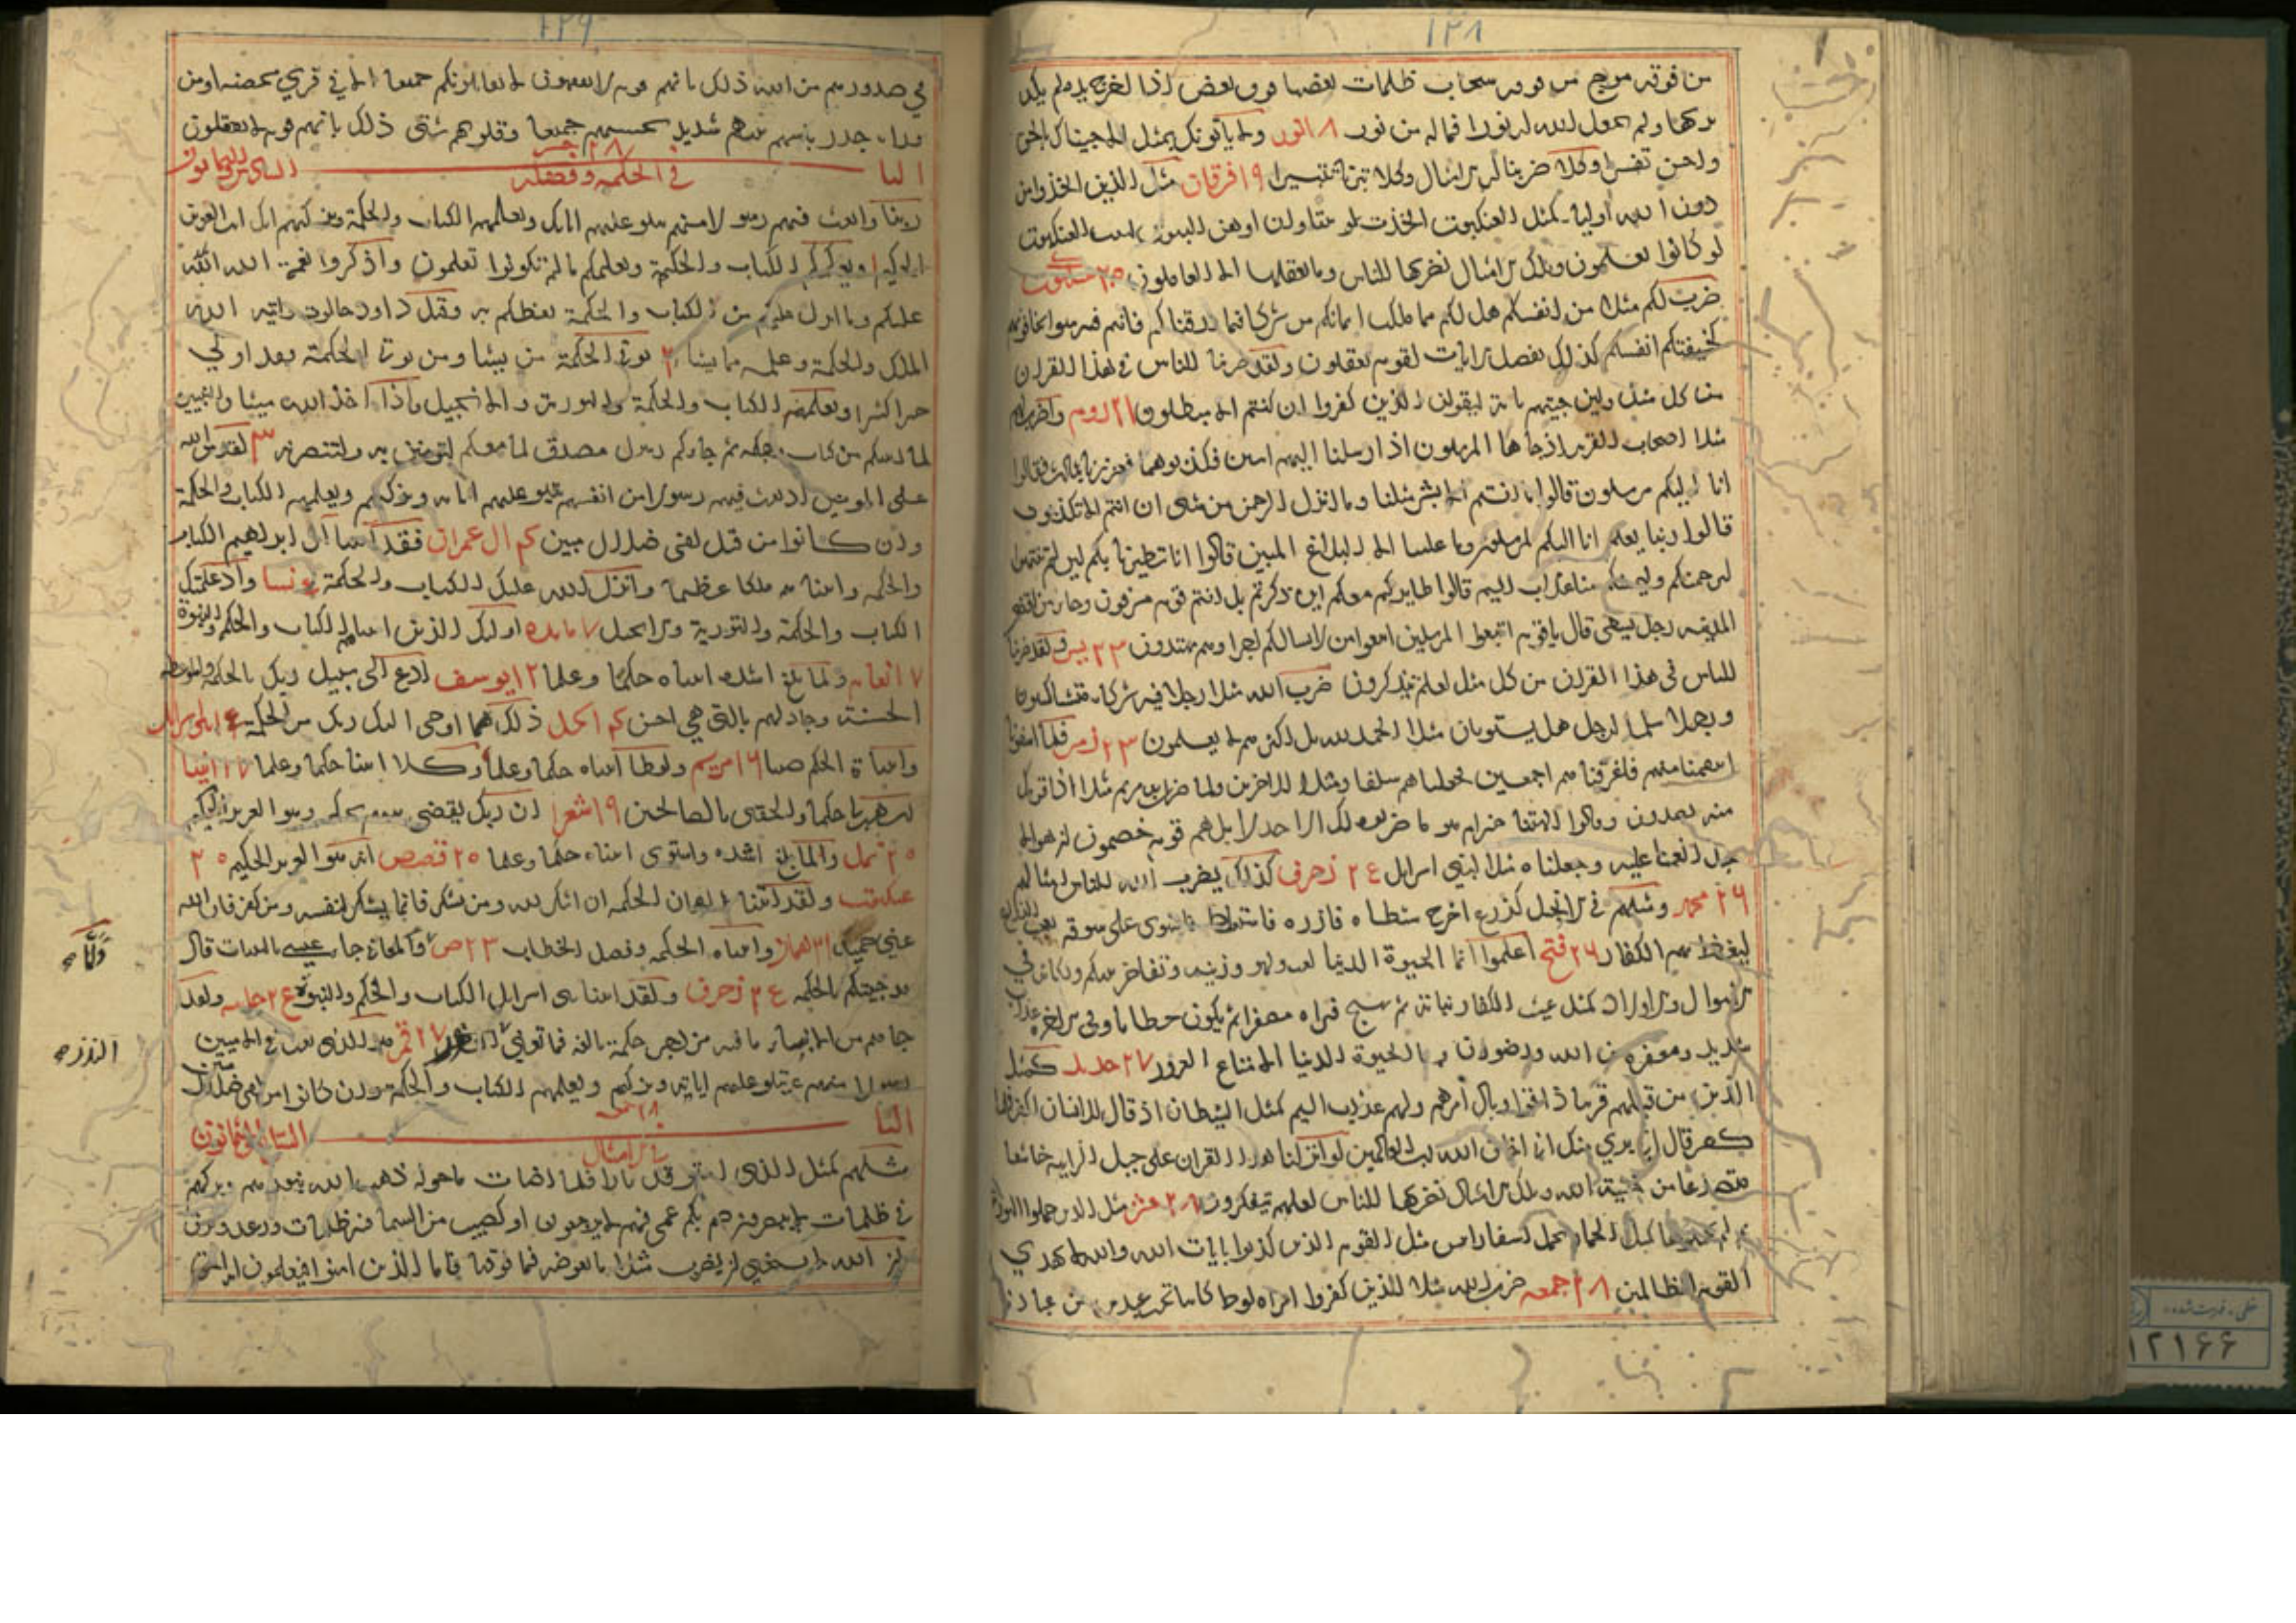 ١٢٨
من فوقه موج من فوقه سحاب ظلمات بعضها فوق بعض اذا اخرج يده لم يكد
يركها ولم يجعل الله له نورا فما له من نور ١٨ النور ولا ياتونك بمثل الا جيناك بالحق
واحسن تفسيرا وكلا ضربنا له الامثال وكلا تبرنا تتبيرا ١٩ فرقان مثل الذين اتخذوا من
دون الله اوليا كمثل العنكبوت اتخذت بيتا وان اوهن البيوت لبيت العنكبوت
لو كانوا يعلمون وتلك الامثال نضربها للناس وما يعقلها الا العالمون ٢٠ عنكبوت
ضرب لكم مثلا من انفسكم هل لكم مما ملكت ايمانكم من شركا فيما رزقناكم فانتم فيه سوا تخافونهم
كخيفتكم انفسكم كذلك نفصل الايات لقوم يعقلون ولقد ضربنا للناس في هذا القران
من كل مثل ولين جيتهم باية ليقولن الذين كفروا ان انتم الا مبطلون ٢١ الروم واضرب لهم
مثلا اصحاب القرية اذ جاها المرسلون اذ ارسلنا اليهم اثنين فكذبوهما فعززنا بثالث فقالوا
انا اليكم مرسلون قالوا ما انتم الا بشر مثلنا وما انزل الرحمن من شى ان انتم الا تكذبون
قالوا ربنا يعلم انا اليكم لمرسلون وما علينا الا البلاغ المبين قالوا انا تطيرنا بكم لين لم تنتهوا
لنرجمنكم وليمسنكم منا عذاب اليم قالوا طايركم معكم اين ذكرتم بل انتم قوم مسرفون وجا من اقصى
المدينه رجل يسعى قال يا قوم اتبعوا المرسلين اتبعوا من لا يسالكم اجرا وهم مهتدون ٢٣ يس ولقد ضربنا
للناس في هذا القران من كل مثل لعلهم يتذكرون ضرب الله مثلا رجلا فيه شركا متشاكسون
ورجلا سلما لرجل هل يستويان مثلا الحمد لله بل اكثرهم لا يعلمون ٢٣ زمر فلما اسفونا
انتقمنا منهم فاغرقناهم اجمعين فجعلناهم سلفا ومثلا للاخرين ولما ضرب ابن مريم مثلا اذا قومك
منه يصدون وقالوا االهتنا خير ام هو ما ضربوه لك الا جدلا بل هم قوم خصمون ان هو الا
عبد انعمنا عليه وجعلناه مثلا لبني اسرايل ٢٤ زخرف كذلك يضرب الله للناس امثالهم
٢٦ محمد ومثلهم في الانجيل كزرع اخرج شطاه فازره فاستغلظ فاستوى على سوقه يعجب الزراع
ليغيظ بهم الكفار ٢٦ فتح اعلموا انما الحيوة الدنيا لعب ولهو وزينه وتفاخر بينكم وتكاثر في
الاموال والاولاد كمثل غيث اعجب الكفار نباته ثم يهيج فتراه مصفرا ثم يكون حطاما وفي الاخره عذاب
شديد ومغفره من الله ورضوان وما الحيوة الدنيا الا متاع الغرور ٢٧ حديد كمثل
الذين من قبلهم قريبا ذاقوا وبال امرهم ولهم عذاب اليم كمثل الشيطان اذ قال للانسان اكفر فلما
كفر قال اني بري منك اني اخاف الله رب العالمين لو انزلنا هذا القران على جبل لرايته خاشعا
متصدعا من خشية الله وتلك الامثال نضربها للناس لعلهم يتفكرون ٢٨ حشر مثل الذين حملوا التوراة
ثم لم يحملوها كمثل الحمار يحمل اسفارا بيس مثل القوم الذين كذبوا بايات الله والله لا يهدي
القوم الظالمين ٢٨ جمعه ضرب الله مثلا للذين كفروا امراه لوط كانتا تحت عبدين من عبادنا
١٢٩
في صدورهم من الله ذلك بانهم قوم لا يفقهون لا يقاتلونكم جميعا الا في قري محصنه او من
وراء جدر باسهم بينهم شديد تحسبهم جميعا وقلوبهم شتى ذلك بانهم قوم لا يعقلون
٢٨ حشر
البا السادس والثمانون
في الحكمه وفضله
ربنا وابعث فيهم رسولا منهم يتلو عليهم اياتك ويعلمهم الكتاب والحكمة ويزكيهم انك انت العزيز
الحكيم ا ويزكيكم ويعلمكم الكتاب والحكمة ويعلمكم ما لم تكونوا تعلمون واذكروا نعمة الله
عليكم وما انزل عليكم من الكتاب والحكمة يعظكم به وقتل داود جالوت واتيه الله
الملك والحكمة وعلمه مما يشاء ٢ يوتي الحكمة من يشا ومن يوت الحكمة فقد اوتي
خيرا كثيرا ويعلمه الكتاب والحكمة والتورية والانجيل واذا اخذ الله ميثاق النبيين
لما اتيتكم من كتاب وحكمه ثم جاءكم رسول مصدق لما معكم لتومنن به ولتنصرنه ٣ لقد من الله
على المومنين اذ بعث فيهم رسولا من انفسهم يتلو عليهم اياته ويزكيهم ويعلمهم الكتاب والحكمة
وان كانوا من قبل لفي ضلال مبين ٤ ال عمران فقد اتينا ال ابرهيم الكتاب
والحكمه واتيناهم ملكا عظيما وانزل الله عليك الكتاب والحكمة ٥ نسا واذ علمتك
الكتاب والحكمة والتورية والانجيل ٧ مايده اوليك الذين اتيناهم الكتاب والحكم والنبوة
٧ انعام ولما بلغ اشده اتيناه حكما وعلما ١٢ يوسف ادع الى سبيل ربك بالحكمة والموعظه
الحسنة وجادلهم بالتي هي احسن ١٤ نحل ذلك مما اوحى اليك ربك من الحكمة
واتيناه الحكم صبيا ١٦ مريم ولوطا اتيناه حكما وعلما وكلا اتينا حكما وعلما ١٧ انبيا
رب هب لي حكما والحقني بالصالحين ١٩ شعرا ان ربك يقضي بينهم بحكمه وهو العزيز الحكيم
٢٠ نمل ولما بلغ اشده واستوى اتيناه حكما وعلما ٢٠ قصص انه هو العزيز الحكيم ٢٠
عنكبوت ولقد اتينا لقمان الحكمه ان اشكر لله ومن يشكر فانما يشكر لنفسه ومن كفر فان الله
غني حميد ٢١ لقمان واتيناه الحكمه وفصل الخطاب ٢٣ ص ولما جا عيسى بالبينات قال
قد جيتكم بالحكمه ٢٤ زخرف ولقد اتينا بني اسرايل الكتاب والحكم والنبوة ٢٤ جاثيه ولقد
ولما
جاهم من الانباء ما فيه مزدجر حكمة بالغه فما تغني النذر ٢٧ قمر هو الذي بعث في الاميين
النذر
رسولا منهم يتلو عليهم اياته ويزكيهم ويعلمهم الكتاب والحكمة وان كانوا من قبل لفي ضلال مبين
البا السابع والثمانون
في الامثال
مثلهم كمثل الذي استوقد نارا فلما اضات ما حوله ذهب الله بنورهم وتركهم
في ظلمات لا يبصرون صم بكم عمي فهم لا يرجعون او كصيب من السما فيه ظلمات ورعد وبرق
ان الله لا يستحيي ان يضرب مثلا ما بعوضه فما فوقها فاما الذين امنوا فيعلمون انه الحق
١٢١٦٦